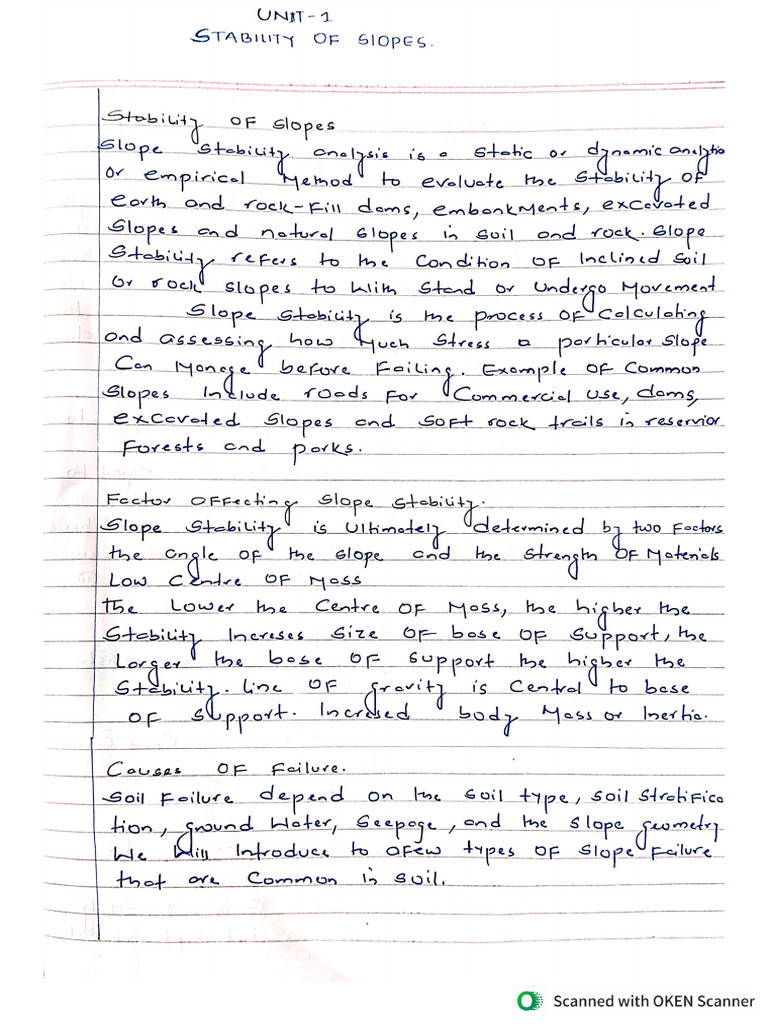 UNIT-1
STABILITY OF SlOPES.
Stability OF Slopes
Slope Stability analysis is a static or dynamic analytic
or empirical Method to evaluate the Stability OF
earth and rock-Fill dams, embankments, excavated
Slopes and natural slopes in soil and rock. Slope
Stability refers to the Condition OF Inclined Soil
Or rock slopes to With stand or Undergo Movement
Slope Stability is the process OF Calculating
and assessing how Much Stress a particular Slope
Can Manage before Failing. Example OF Common
Slopes Include roads For Commercial use, dams,
excavated Slopes and soft rock trails in reservior
Forests and parks.
Factor OFFecting Slope Stability.
Slope Stability is Ultimately determined by two Factors
the angle OF the slope and the Strength OF Materials
Low Centre OF Mass
The Lower the Centre OF Mass, the higher the
Stability Increses Size OF base OF Support, the
Larger the base OF support the higher the
Stability. line OF gravity is Central to base
OF Support. Incresed body Mass or Inertia.
Causes OF Failure.
Soil Failure depend on the soil type, soil StratiFica
tion, ground Water, Seepage, and the slope geometry
We Will Introduce to aFew types OF Slope Failure
that are Common in Soil.
Scanned with OKEN Scanner